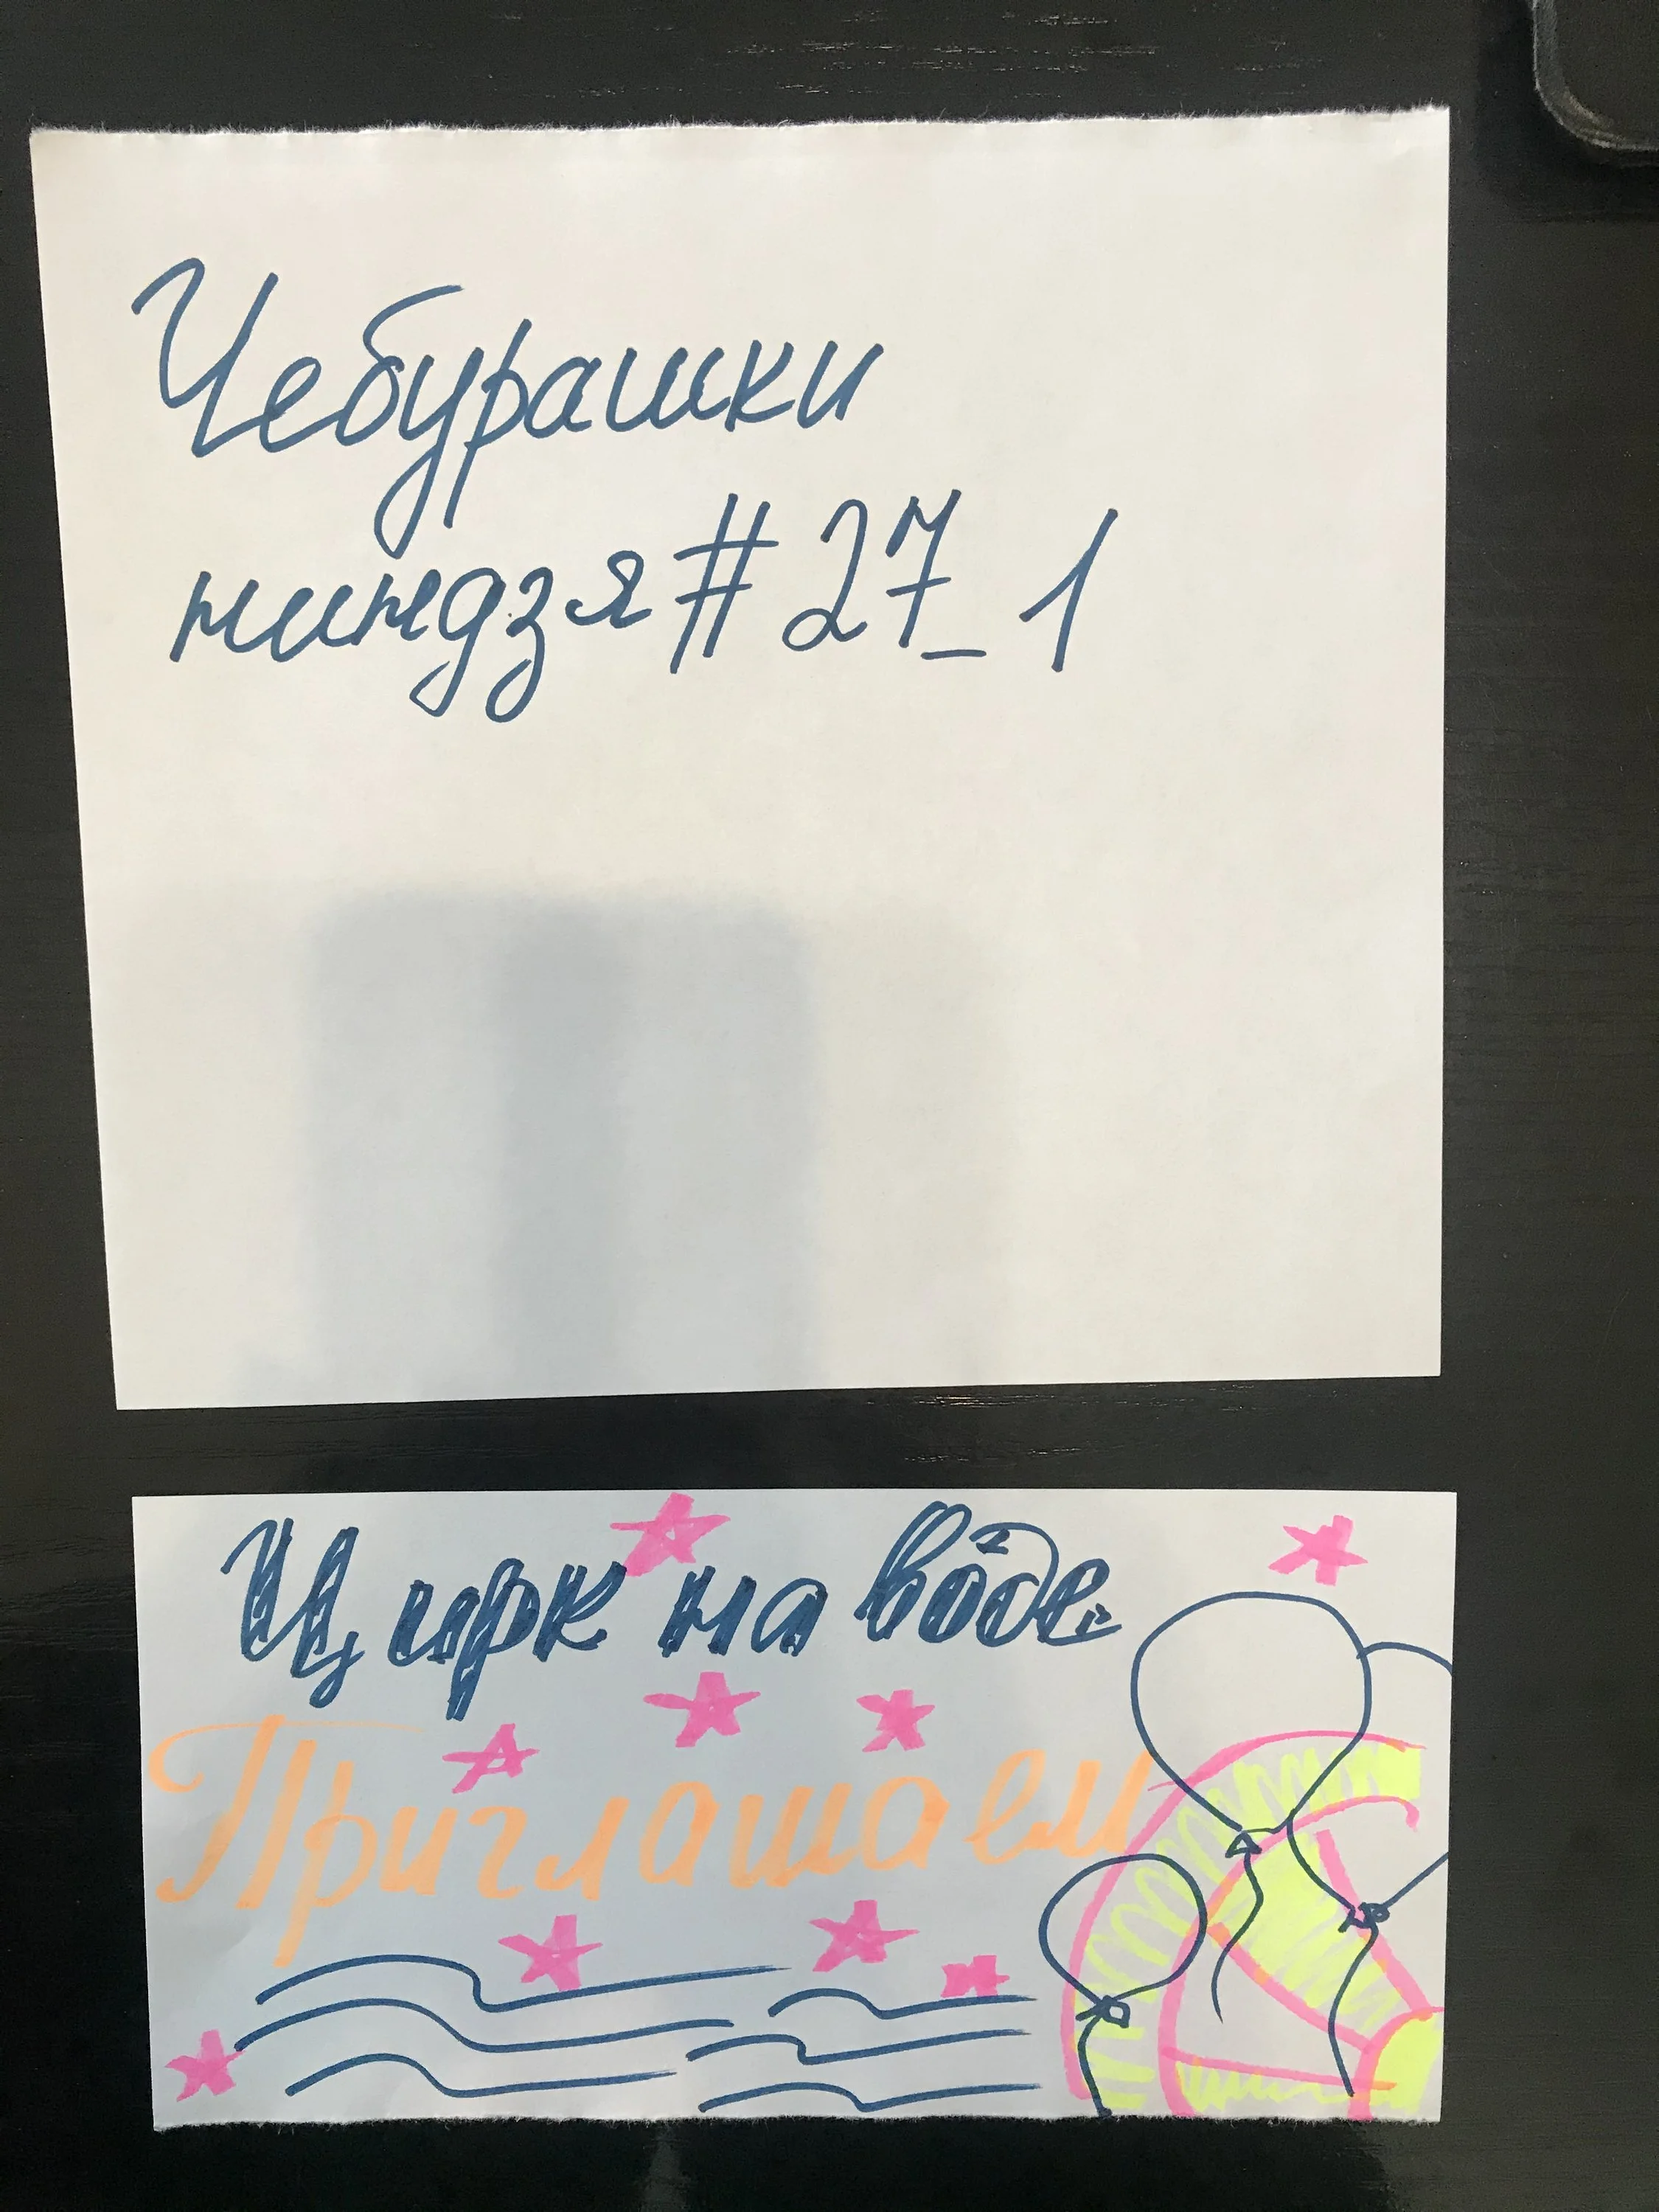 Чебурашки
ниндзя #27_1
Цирк на воде
Приглашаем